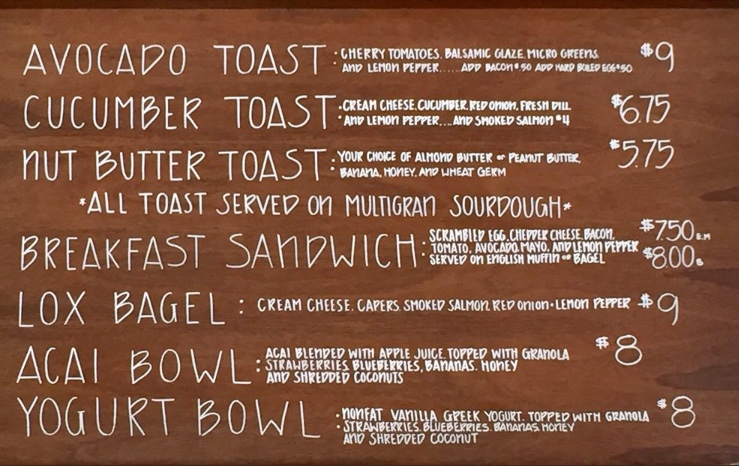 AVOCADO TOAST: CHERRY TOMATOES, BALSAMIC GLAZE, MICRO GREENS, $9
AND LEMON PEPPER..... ADD BACON $.50 ADD HARD BOILED EGG $.50
CUCUMBER TOAST: CREAM CHEESE, CUCUMBER, RED ONION, FRESH DILL $6.75
AND LEMON PEPPER....AND SMOKED SALMON $4
NUT BUTTER TOAST: YOUR CHOICE OF ALMOND BUTTER or PEANUT BUTTER, $5.75
BANANA, HONEY, AND WHEAT GERM
*ALL TOAST SERVED ON MULTIGRAN SOURDOUGH*
BREAKFAST SANDWICH: SCRAMBLED EGG, CHEDDER CHEESE, BACON, $7.50 E.M
TOMATO, AVOCADO, MAYO, AND LEMON PEPPER $8.00 B
SERVED ON ENGLISH MUFFIN or BAGEL
LOX BAGEL: CREAM CHEESE, CAPERS, SMOKED SALMON, RED ONION + LEMON PEPPER $9
ACAI BOWL: ACAI BLENDED WITH APPLE JUICE, TOPPED WITH GRANOLA $8
STRAWBERRIES, BLUEBERRIES, BANANAS, HONEY
AND SHREDDED COCONUTS
YOGURT BOWL: NONFAT VANILLA GREEK YOGURT, TOPPED WITH GRANOLA $8
STRAWBERRIES, BLUEBERRIES, BANANAS, HONEY
AND SHREDDED COCONUT